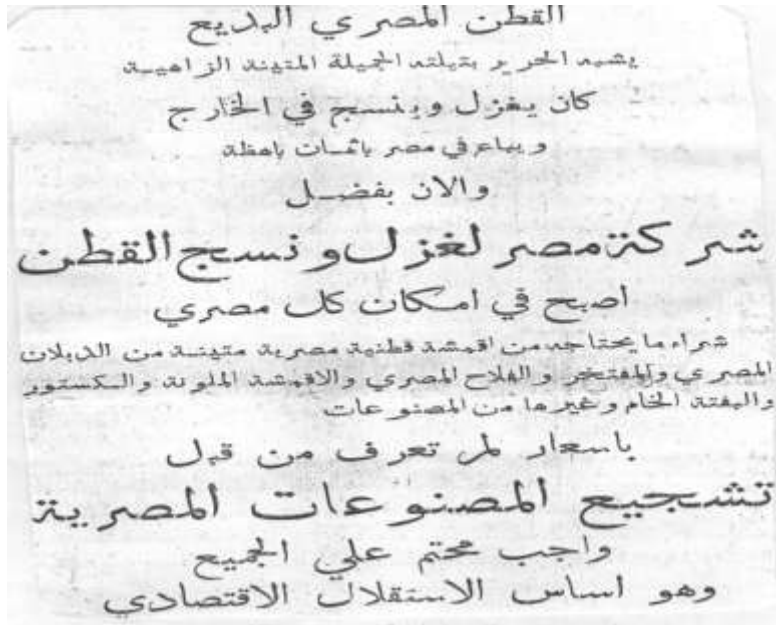 القطن المصري البديع
يشبه الحرير بتيلته الجميلة المتينة الزاهية
كان يغزل وينسج في الخارج
ويباع في مصر باثمان باهظة
والان بفضل
شركة مصر لغزل ونسج القطن
اصبح في امكان كل مصري
شراء ما يحتاجه من اقمشة قطنية مصرية متينة من الدبلان
المصري والمفتخر والفلاح المصري والاقمشة الملونة والكستور
والبفتة الخام وغيرها من المصنوعات
باسعار لم تعرف من قبل
تشجيع المصنوعات المصرية
واجب محتم علي الجميع
وهو اساس الاستقلال الاقتصادي